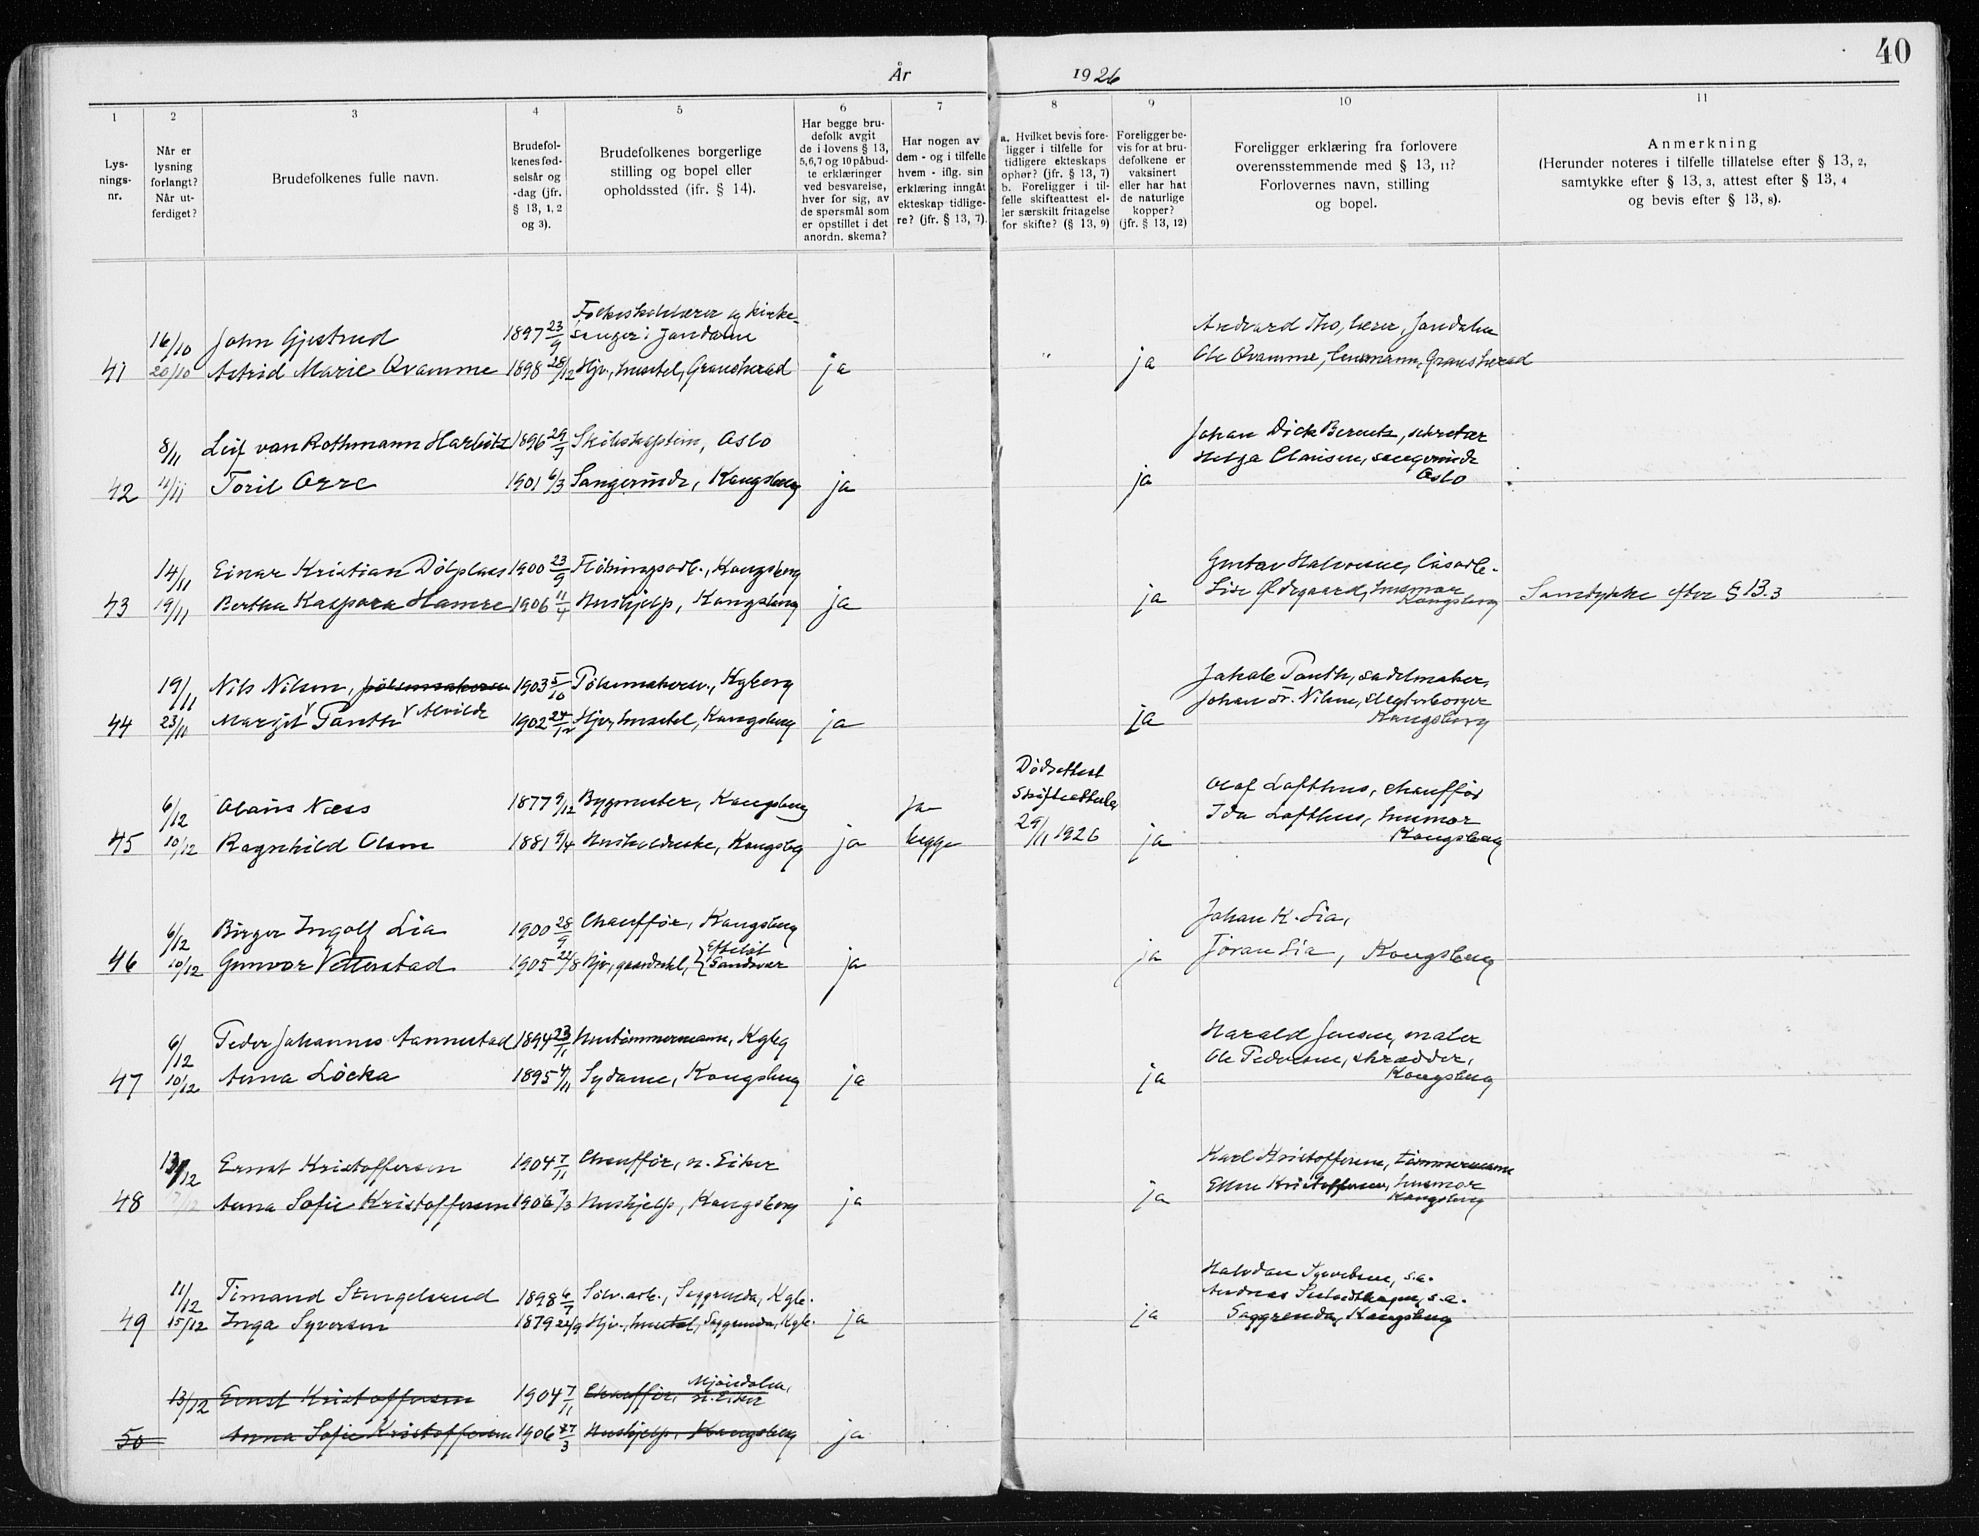 40
År 1926
1 2 3 4 5 6 7 8 9 10 11
Lysnings-nr.
Når er lysning forlangt? Når utferdiget?
Brudefolkenes fulle navn.
Brudefolkenes fødselsår og -dag (jfr. § 13, 1, 2 og 3).
Brudefolkenes borgerlige stilling og bopel eller opholdssted (ifr. § 14).
Har begge brudefolk avgit de i lovens § 13, 5, 6, 7 og 10 påbudte erklæringer ved besvarelse, hver for sig, av de spørsmål som er opstillet i det anordn. skema?
Har nogen av dem - og i tilfelle hvem - iflg. sin erklæring inngåt ekteskap tidligere? (jfr. § 13, 7).
a. Hvilket bevis foreligger i tilfelle for tidligere ekteskaps ophør? (jfr. § 13, 7) b. Foreligger i tilfelle skifteattest eller særskilt fritagelse for skifte? (§ 13, 9)
Foreligger bevis for at brudefolkene er vaksinert eller har hat de naturlige kopper? (jfr. § 13, 12)
Foreligger erklæring fra forlovere overensstemmende med § 13, 11? Forlovernes navn, stilling og bopel.
Anmerkning (Herunder noteres i tilfelle tillatelse efter § 13, 2, samtykke efter § 13, 3, attest efter § 13, 4 og bevis efter § 13, 8).
16/10 John Gjestrud 1897 23/9 Folkeskolelærer og kirkesanger i Jondalen
41 20/10 Astrid Marie Qvamme 1898 28/12 Hjv., husstel, Gransherad ja " ja Ole Qvamme, Gransherad
8/11 Leif van Rothmann Harbitz 1896 29/7 Skibskaptein, Oslo Johan Dick Berentz, sekretær
42 11/11 Toril Orre 1901 6/3 Sangerinde, Kongsberg ja ja Helga Clausen, sangerinde Oslo
14/11 Einar Kristian Dölplads 1900 23/9 Flötningsarb., Kongsberg Gustav Halvorsen,
43 19/11 Bertha Kaspara Hamre 1906 11/4 Hushjelp, Kongsberg ja ja Lise Ødegaard, husmor Kongsberg Samtykke efter § 13.3
19/11 Nils Nilsen, pölsemakersv. 1903 5/10 Pölsemakersv., Kgberg Panth, sadelmaker,
44 23/11 Margit Alvilde Panth 1902 24/12 Hjv., husstel, Kongsberg ja ja Johan Fr. Nilsen, Kongsberg
6/12 Olaus Næss 1877 9/12 Bygmester, Kongsberg Ja Dødsattest Skifteattester Olaf Lofthus, chauffør
45 10/12 Ragnhild Olsen 1881 9/4 Husholderske, Kongsbg ja begge 29/11 1926 ja Ida Lofthus, husmor Kongsberg
6/12 Birger Ingolf Lia 1900 28/9 Chauffør, Kongsberg Johan K. Lia,
46 10/12 Gunvor Vetterstad 1905 22/8 Hjv., Efteløt Sandsvær ja ja Jöran Lia, Kongsberg
6/12 Peder Johannes Aannestad 1894 23/11 Hustömmermann, Kgbg Harald Jensen, maler
47 10/12 Anna Löcka 1895 4/11 Sydame, Kongsberg ja ja Ole Pedersen, skrædder, Kongsberg
13/12 Ernst Kristoffersen 1904 7/11 Chauffør, n. Eiker Karl Kristoffersen, tömmermann
48 17/12 Anna Sofie Kristoffersen 1906 7/3 Hushjelp, Kongsberg ja ja Ellen Kristoffersen, husmor Kongsberg
11/12 Timand Stengelsrud 1898 6/7 Sölv. arb., Saggrenda, Kgb. Halvdan Syvertsen, s.a.
49 15/12 Inga Syversen 1879 24/9 Hjv., husstel, Saggrenda, Kgb. ja ja Andreas s.a. Saggrenda, Kongsberg
13/12 Ernst Kristoffersen 1904 7/11 Chauffør, Mjöndalen, n. Eiker
50 Anna Sofie Kristoffersen 1906 27/3 Hushjelp, Kongsberg ja